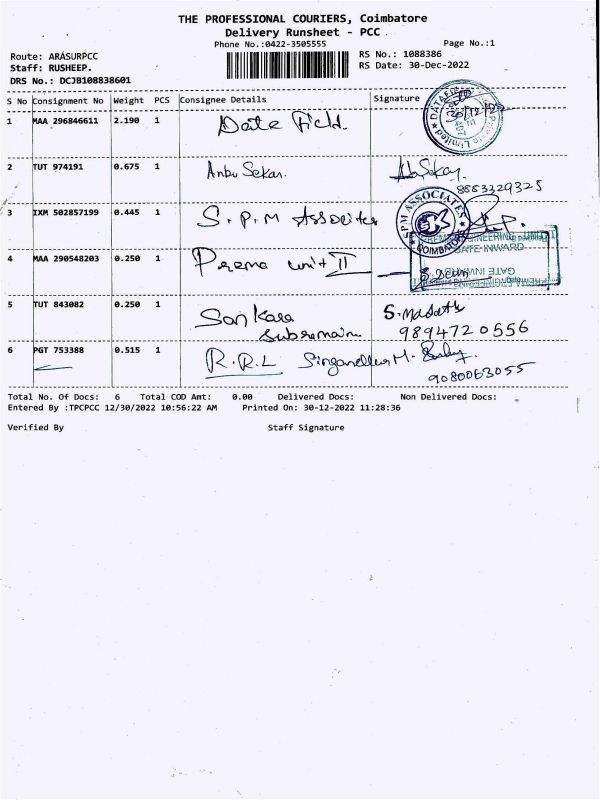 THE PROFESSIONAL COURIERS, Coimbatore
Delivery Runsheet - PCC
Phone No.:0422-3505555
Page No.:1
Route: ARASURPCC
RS No.: 1088386
Staff: RUSHEEP.
RS Date: 30-Dec-2022
DRS No.: DCJB108838601
S No Consignment No Weight PCS Consignee Details Signature
1 MAA 296846611 2.190 1 Date Field.
30/12/22
2 TUT 974191 0.675 1 Anbu Sekar.
8553329325
3 IXM 502857199 0.445 1 S.P.M Assocites
SPM ASSOCIATES
COIMBATORE
4 MAA 290548203 0.250 1 Prema unit II
GATE INWARD
5 TUT 843082 0.250 1 Sankara
9894720556
6 PGT 753388 0.515 1 R.R.L
9080063055
Total No. Of Docs: 6 Total COD Amt: 0.00 Delivered Docs: Non Delivered Docs:
Entered By :TPCPCC 12/30/2022 10:56:22 AM Printed On: 30-12-2022 11:28:36
Verified By Staff Signature